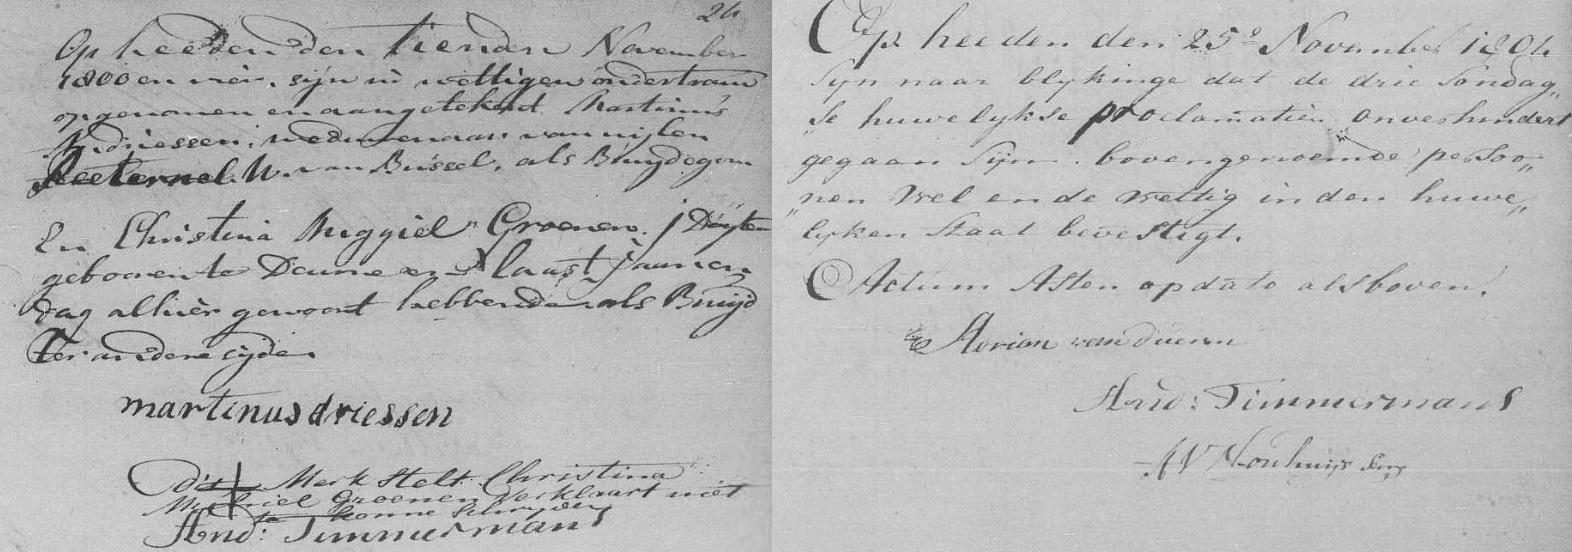 24
Op heeden den tienden November
1800 en vier. sijn in wettigen ondertrouw
opgenomen en aangetekent Martinus
Driessen, weduwenaar van wijlen
Peeternel W. van Bussel, als Bruydegom
En Christina Miggiel Groenen. j Dogter
gebooren te Deurne en laast Jaar en
dag alhier gewoont hebbende als Bruijd
Ter andere syde
martinus driessen
Dit Merk stelt Christina
Michiel Groenen verklaart niet
te konne schryven
And: Timmermans
Op heeden den 25e November 1804
Syn naar blykinge dat de drie Sondag„
„se huwelykse proclamatien onverhindert
gegaan Syn. bovengenoemde persoo„
„nen Wel ende Wettig in den huwe„
lyken Staat bevestigt.
Actum Asten op dato als boven.
Adrian van Duren
And: Timmermans